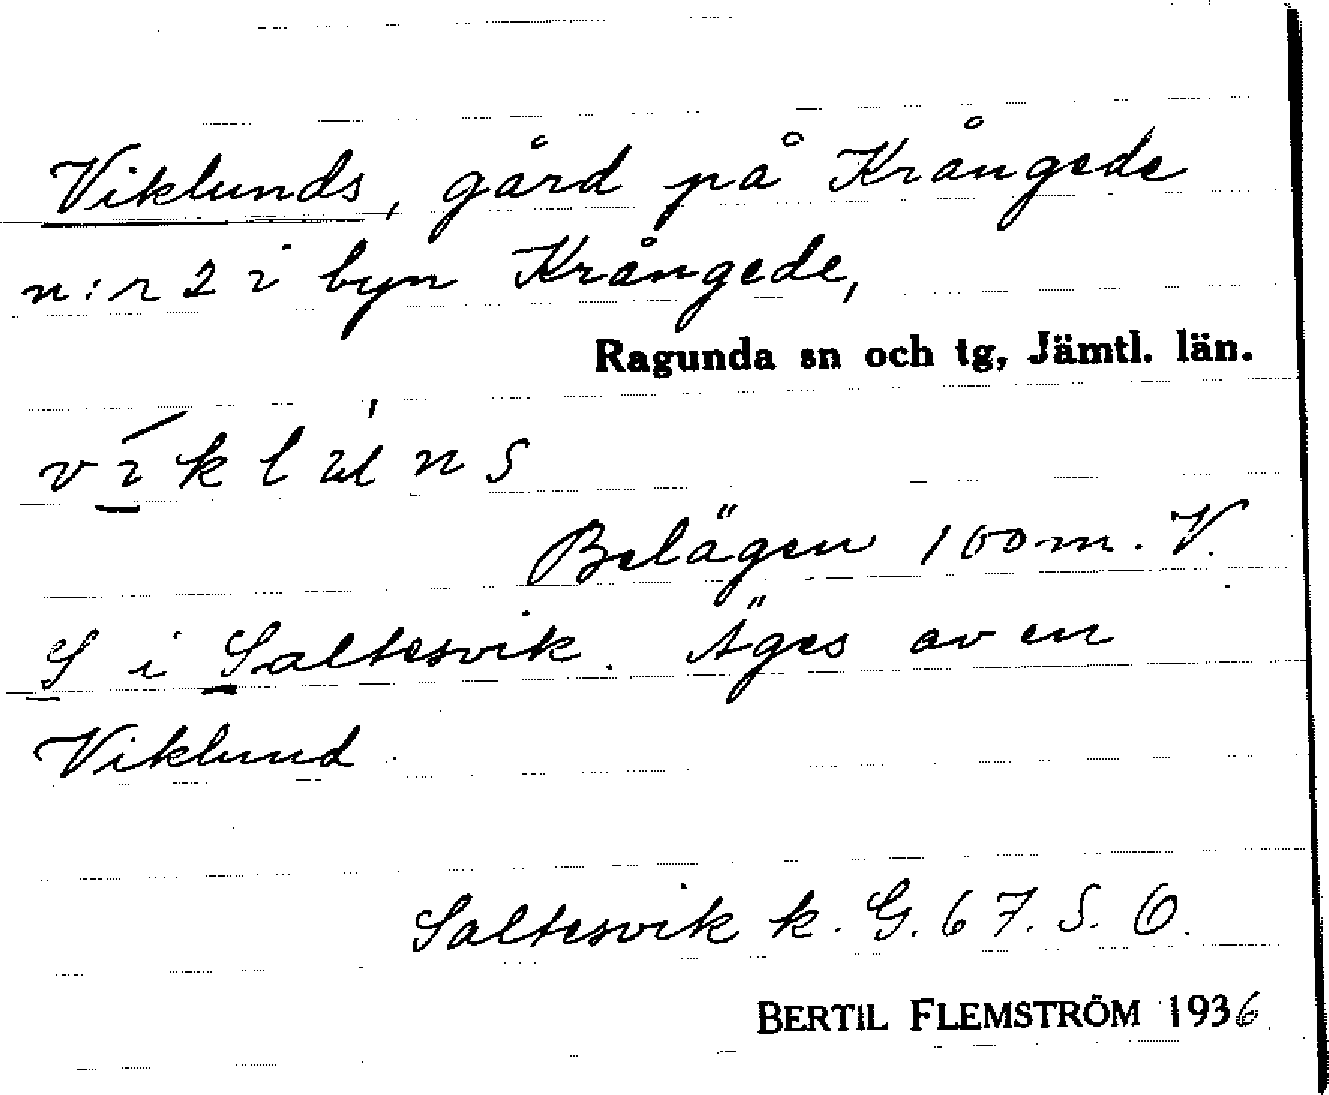 Viklunds, gård på Krångede
n:r 2 i byn Krångede,
Ragunda sn och tg, Jämtl. län.
víklúns
Belägen 100 m. V.
S i Saltesvik. Äges av en
Viklund
Saltesvik k. G. 67. S. O.
BERTIL FLEMSTRÖM 1936